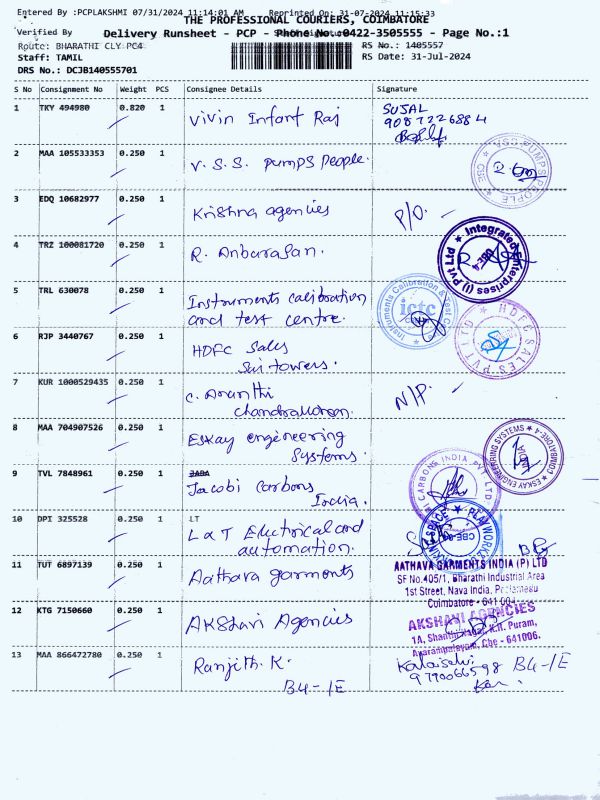 Entered By :PCPLAKSHMI 07/31/2024 11:14:01 AM Reprinted On: 31-07-2024 11:15:33
THE PROFESSIONAL COURIERS, COIMBATORE
Verified By
Delivery Runsheet - PCP - Phone No.:0422-3505555 - Page No.:1
Route: BHARATHI CLY PC4
RS No.: 1405557
Staff: TAMIL
RS Date: 31-Jul-2024
DRS No.: DCJB140555701
S No Consignment No Weight PCS Consignee Details Signature
1 TKY 494980 0.820 1 Vivin Infant Raj SUJAL
9087226884
2 MAA 105533353 0.250 1 V.S.S. pumps people.
VSS PUMPS PEOPLE
CBE
3 EDQ 10682977 0.250 1 Krishna agencies P/O.
4 TRZ 100081720 0.250 1 R. Anbarasan.
Integrated Enterprises (I) Pvt Ltd
CBE-4
5 TRL 630078 0.250 1 Instruments calibration
and test centre.
Instruments Calibration & Test
ictc
6 RJP 3440767 0.250 1 HDFC Sales
Sai towers.
HDFC SALES PVT LTD
7 KUR 1000529435 0.250 1 C. Ananthi
chandramohan.
N/P.
8 MAA 704907526 0.250 1 Eskay engineering
Systems.
ESKAY ENGINEERING SYSTEMS
COIMBATORE-4
9 TVL 7848961 0.250 1 JABA
Jacobi Carbons
India.
CARBONS INDIA PVT LTD
10 DPI 325528 0.250 1 LT
L&T Electrical and
automation.
SPACE PLAY WORK
11 TUT 6897139 0.250 1 Aathava garments
AATHAVA GARMENTS INDIA (P) LTD
SF No.405/1, Bharathi Industrial Area
1st Street, Nava India,
Coimbatore - 641 004
12 KTG 7150660 0.250 1 Akshavi Agencies
AKSHAVI AGENCIES
1A, Shanthi Nagar, K.R. Puram,
Avarampalayam, Cbe - 641006.
13 MAA 866472780 0.250 1 Ranjith. K.
B4-1E
Kalaiselvi
9790066598 B4-1E